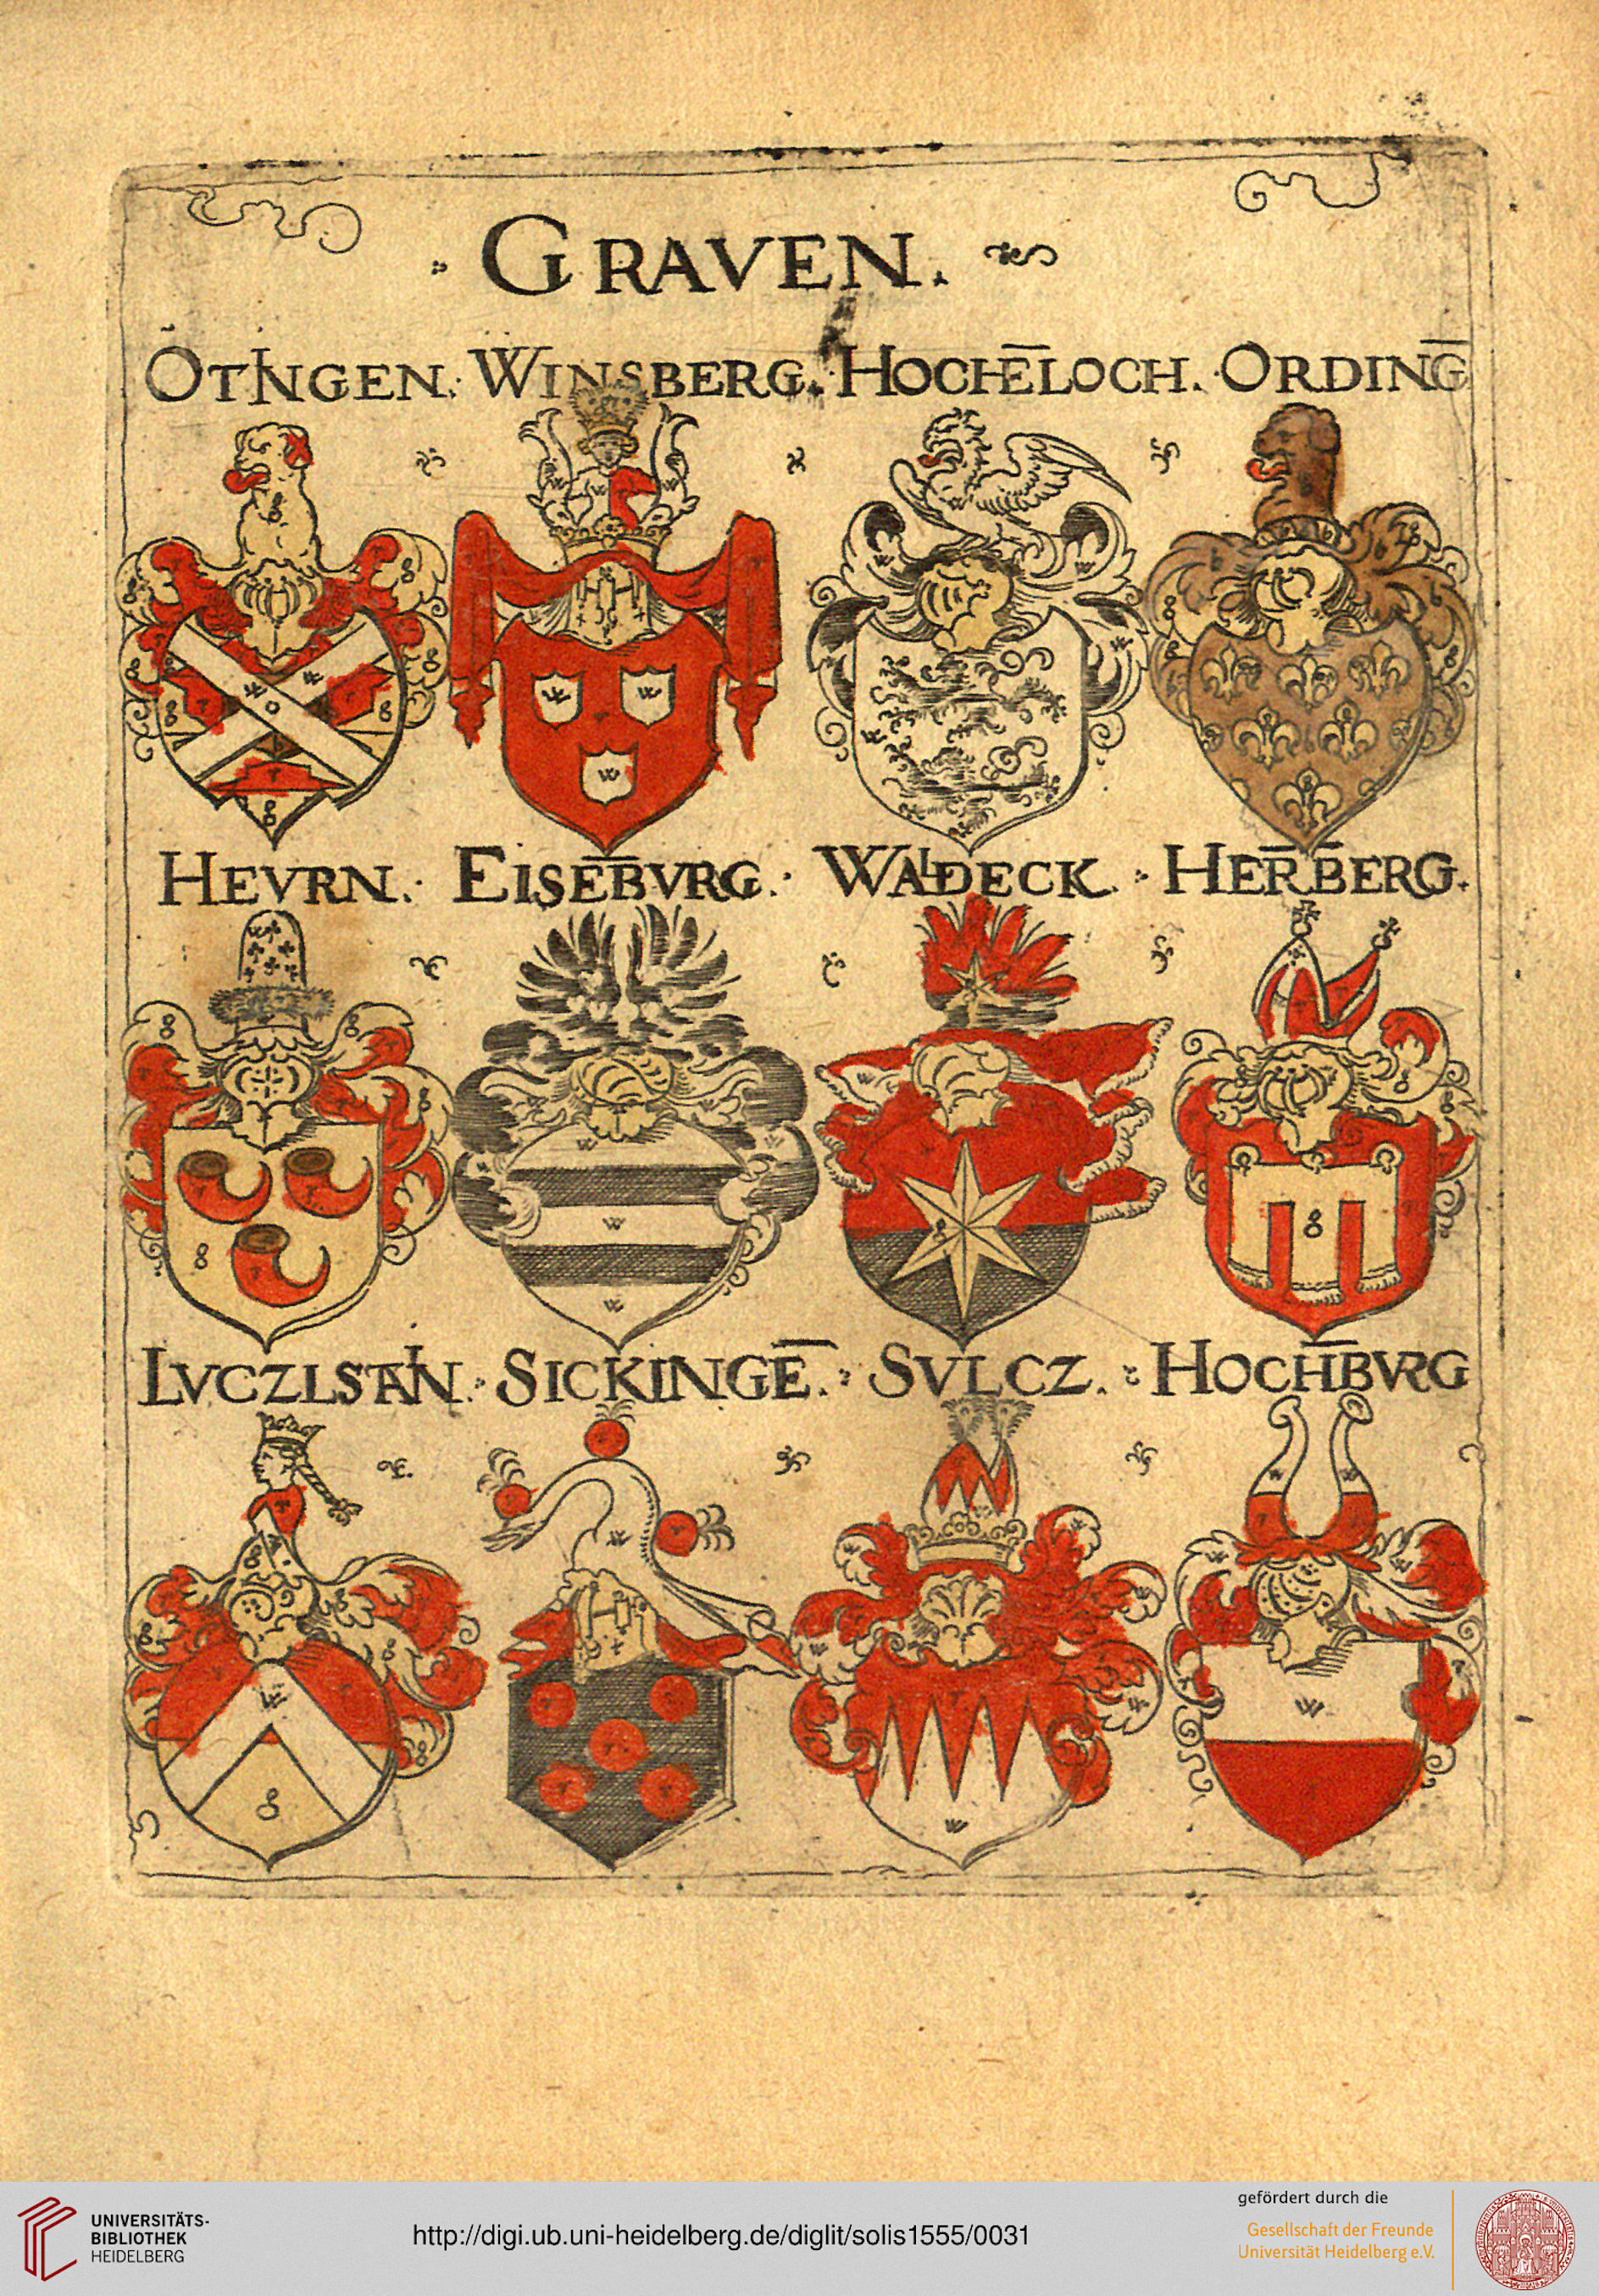 GRAVEN.
ÖTINGEN. WINSBERG. HOCHĒLOCH. ORDINḠ
HEVRN. EISEB̄VRG. WALDECK. HER̄B̄ERG.
LVCZLSTAIN. SICKINGĒ. SVLCZ. HOCHB̄VRG
UNIVERSITÄTS-
BIBLIOTHEK
HEIDELBERG
http://digi.ub.uni-heidelberg.de/diglit/solis1555/0031
gefördert durch die
Gesellschaft der Freunde
Universität Heidelberg e.V.